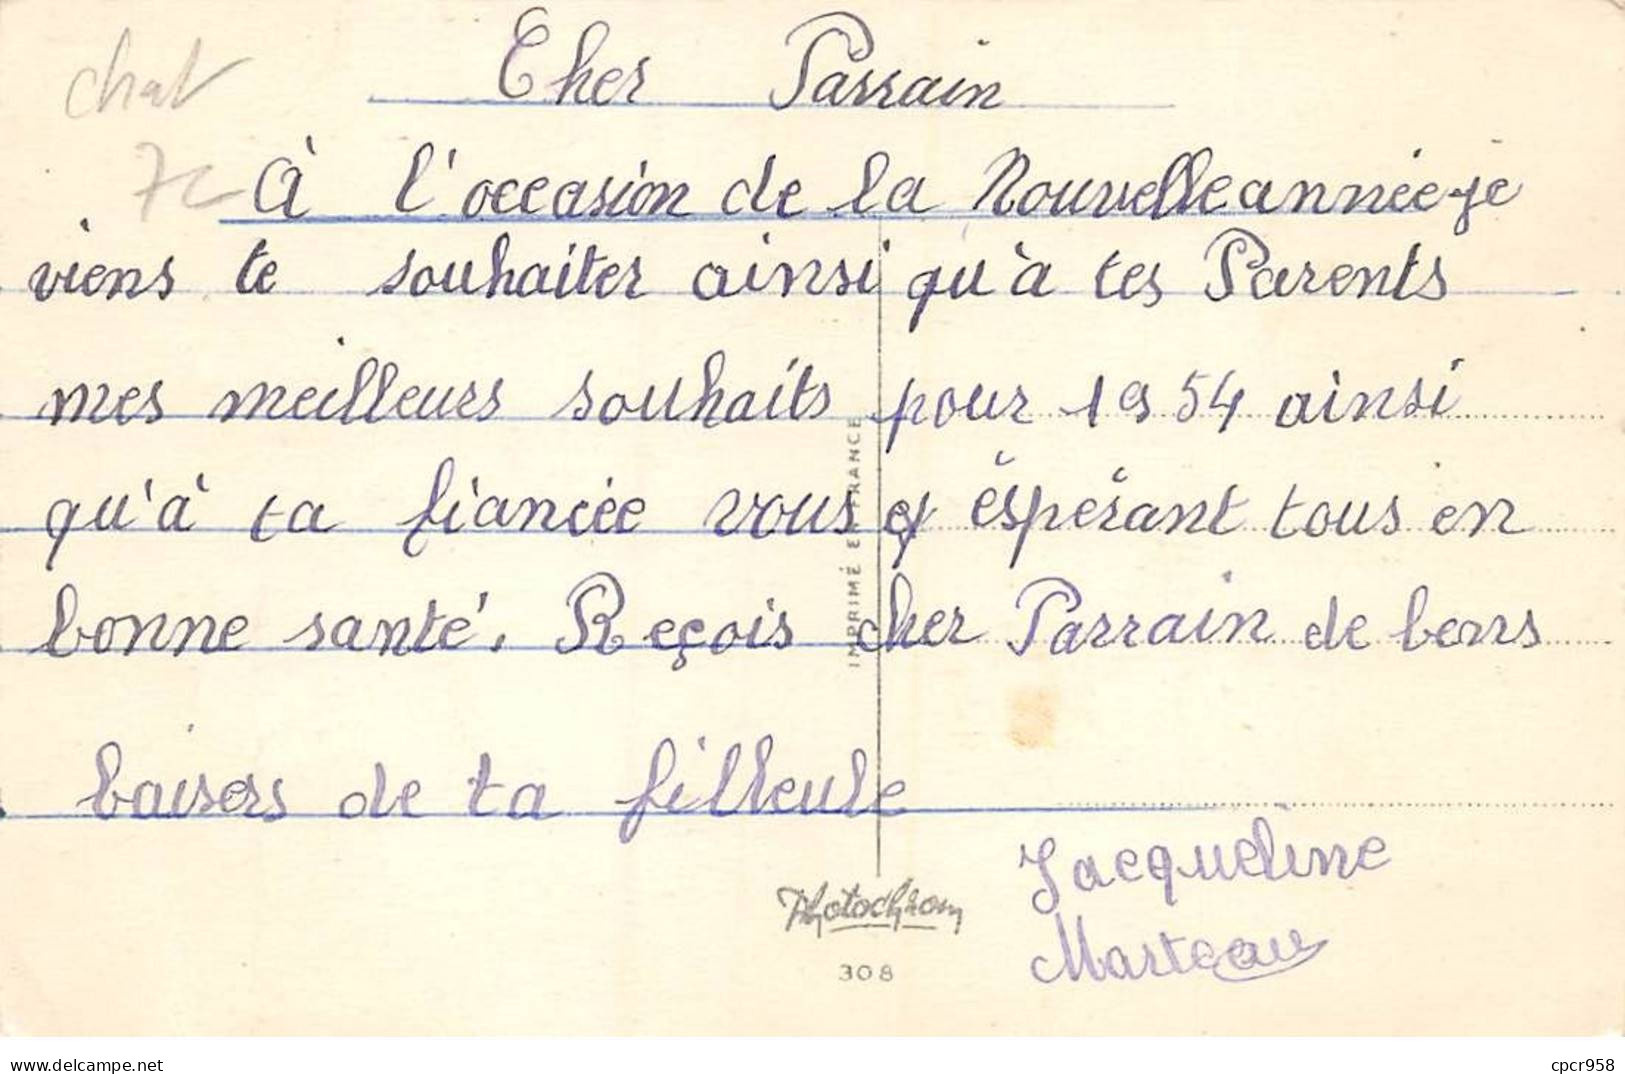 chat
Cher Parrain
7c
À l'occasion de la Nouvelle année je
viens te souhaiter ainsi qu'à tes Parents
mes meilleurs souhaits pour 1954 ainsi
qu'à ta fiancée vous y éspérant tous en
bonne santé. Reçois cher Parrain de bons
baisers de ta filleule
Jacqueline
Marteau
IMPRIMÉ EN FRANCE
Photochrom
308
www.delcampe.net
cpcr958